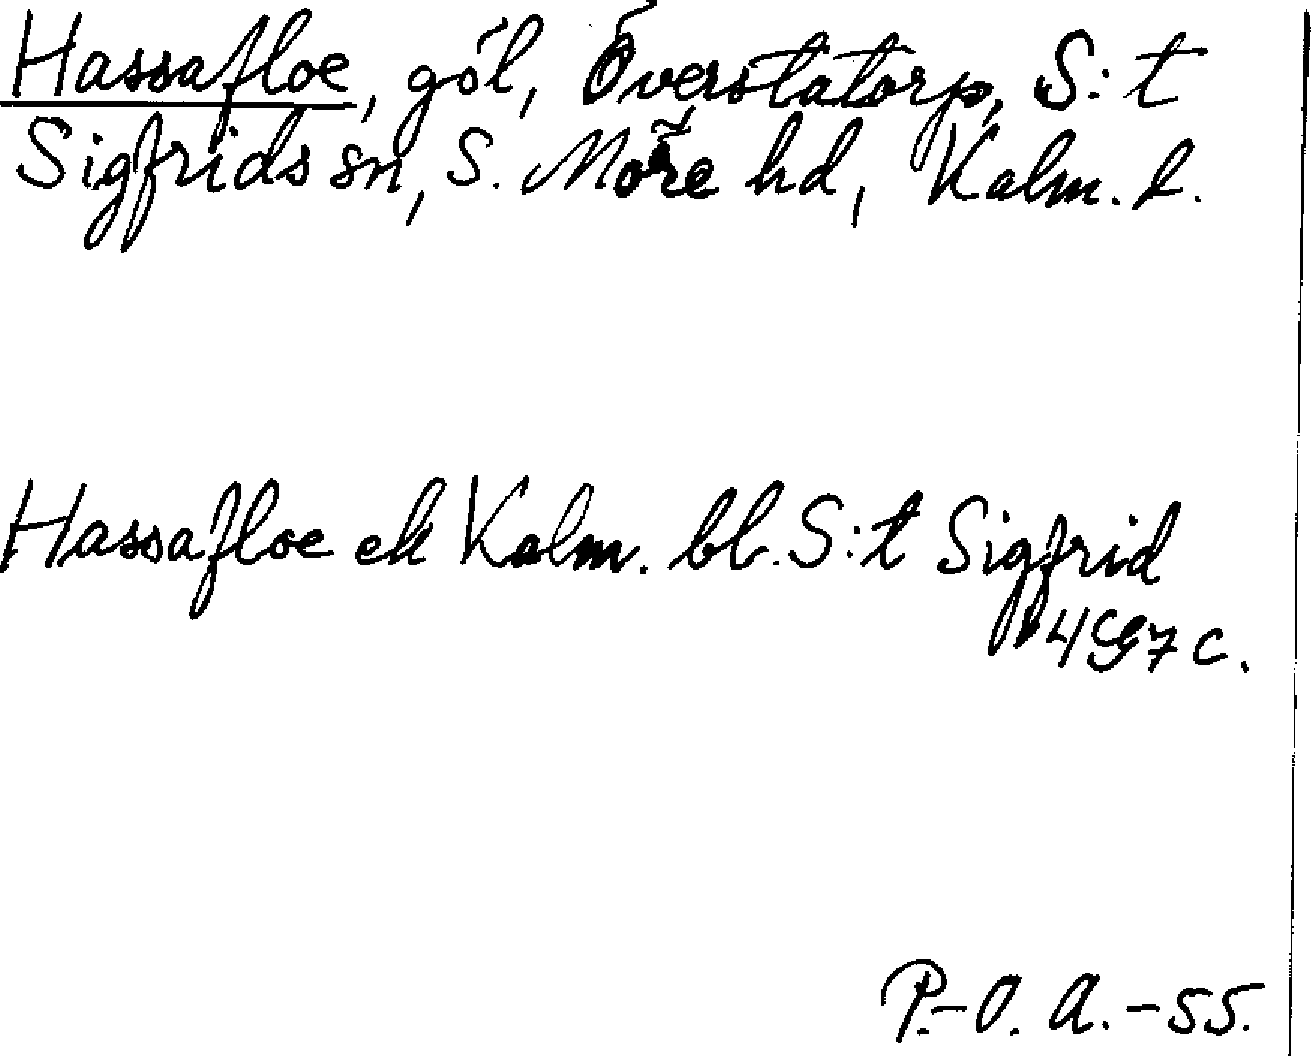 Hassafloe, göl, Överstatorp, S:t
Sigfrids sn, S. Möre hd, Kalm. l.
Hassafloe ek Kalm. bl. S:t Sigfrid
4G7c.
P.-O. A.-55.